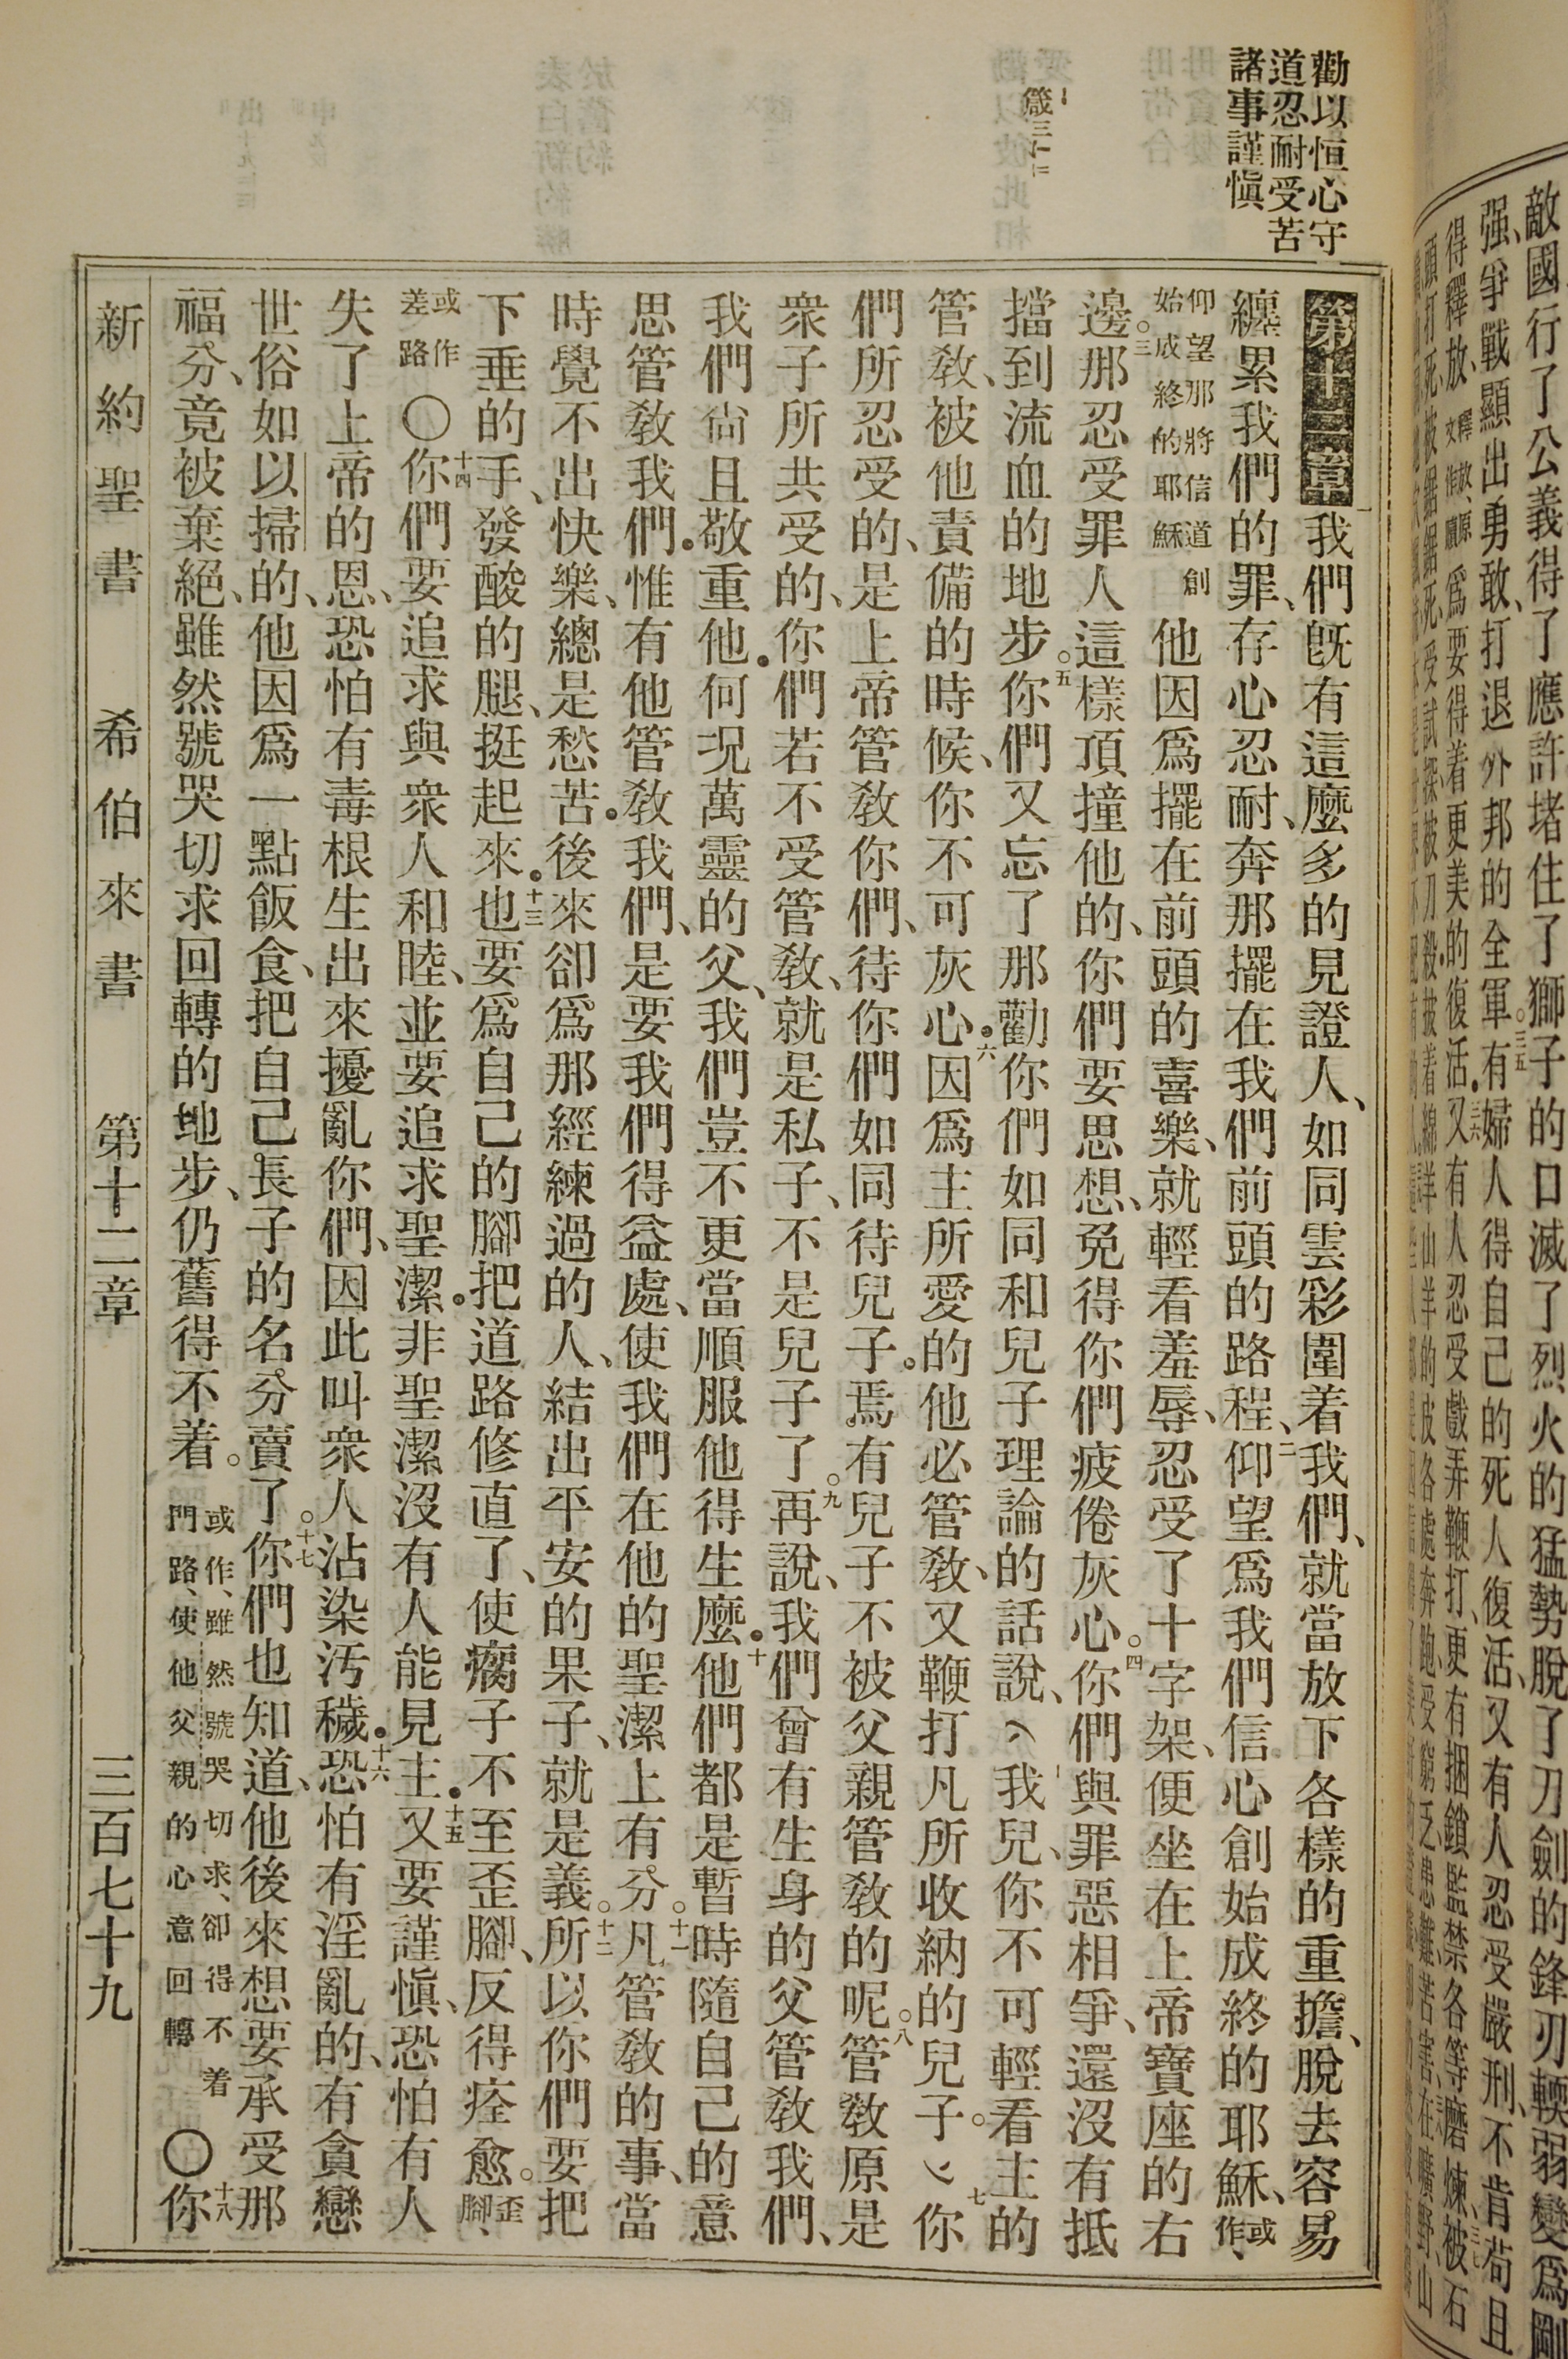 勸以恒心守
道忍耐受苦
諸事謹愼
箴三
第十二章 一我們旣有這麼多的見證人、如同雲彩圍着我們、就當放下各樣的重擔、脫去容易
纏累我們的罪、存心忍耐、奔那擺在我們前頭的路程、二仰望爲我們信心創始成終的耶穌、或作、
仰望那將信道創始成終的耶穌 他因爲擺在前頭的喜樂、就輕看羞辱、忍受了十字架、便坐在上帝寶座的右
邊。三那忍受罪人這樣頂撞他的、你們要思想、免得你們疲倦灰心。四你們與罪惡相爭、還沒有抵
擋到流血的地步。五你們又忘了那勸你們如同和兒子理論的話說、我兒、你不可輕看主的
管敎、被他責備的時候、你不可灰心。六因爲主所愛的他必管敎、又鞭打凡所收納的兒子。七你
們所忍受的、是上帝管敎你們、待你們如同待兒子。焉有兒子不被父親管敎的呢。八管敎原是
衆子所共受的、你們若不受管敎、就是私子、不是兒子了。九再說、我們曾有生身的父管敎我們、
我們尙且敬重他．何況萬靈的父、我們豈不更當順服他得生麼．十他們都是暫時隨自己的意
思管敎我們．惟有他管敎我們、是要我們得益處、使我們在他的聖潔上有分。十一凡管敎的事、當
時覺不出快樂、總是愁苦．後來卻爲那經練過的人、結出平安的果子、就是義。十二所以你們要把
下垂的手、發酸的腿、挺起來．十三也要爲自己的腳把道路修直了、使瘸子不至歪腳、反得痊愈。歪腳、
或作差路 〇十四你們要追求與衆人和睦、並要追求聖潔．非聖潔沒有人能見主．十五又要謹愼、恐怕有人
失了上帝的恩、恐怕有毒根生出來擾亂你們、因此叫衆人沾染汚穢．十六恐怕有淫亂的、有貪戀
世俗如以掃的、他因爲一點飯食、把自己長子的名分賣了。十七你們也知道、他後來想要承受那
福分、竟被棄絕、雖然號哭切求回轉的地步、仍舊得不着。或作、雖然號哭切求、卻得不着門路、使他父親的心意回轉 〇十八你
新約聖書 希伯來書 第十二章 三百七十九
敵國行了公義得了應許堵住了獅子的口滅了烈火的猛勢脫了刀劍的鋒刃輭弱變爲剛
强、爭戰顯出勇敢、打退外邦的全軍。三五有婦人得自己的死人復活、又有人忍受嚴刑、不肯苟且